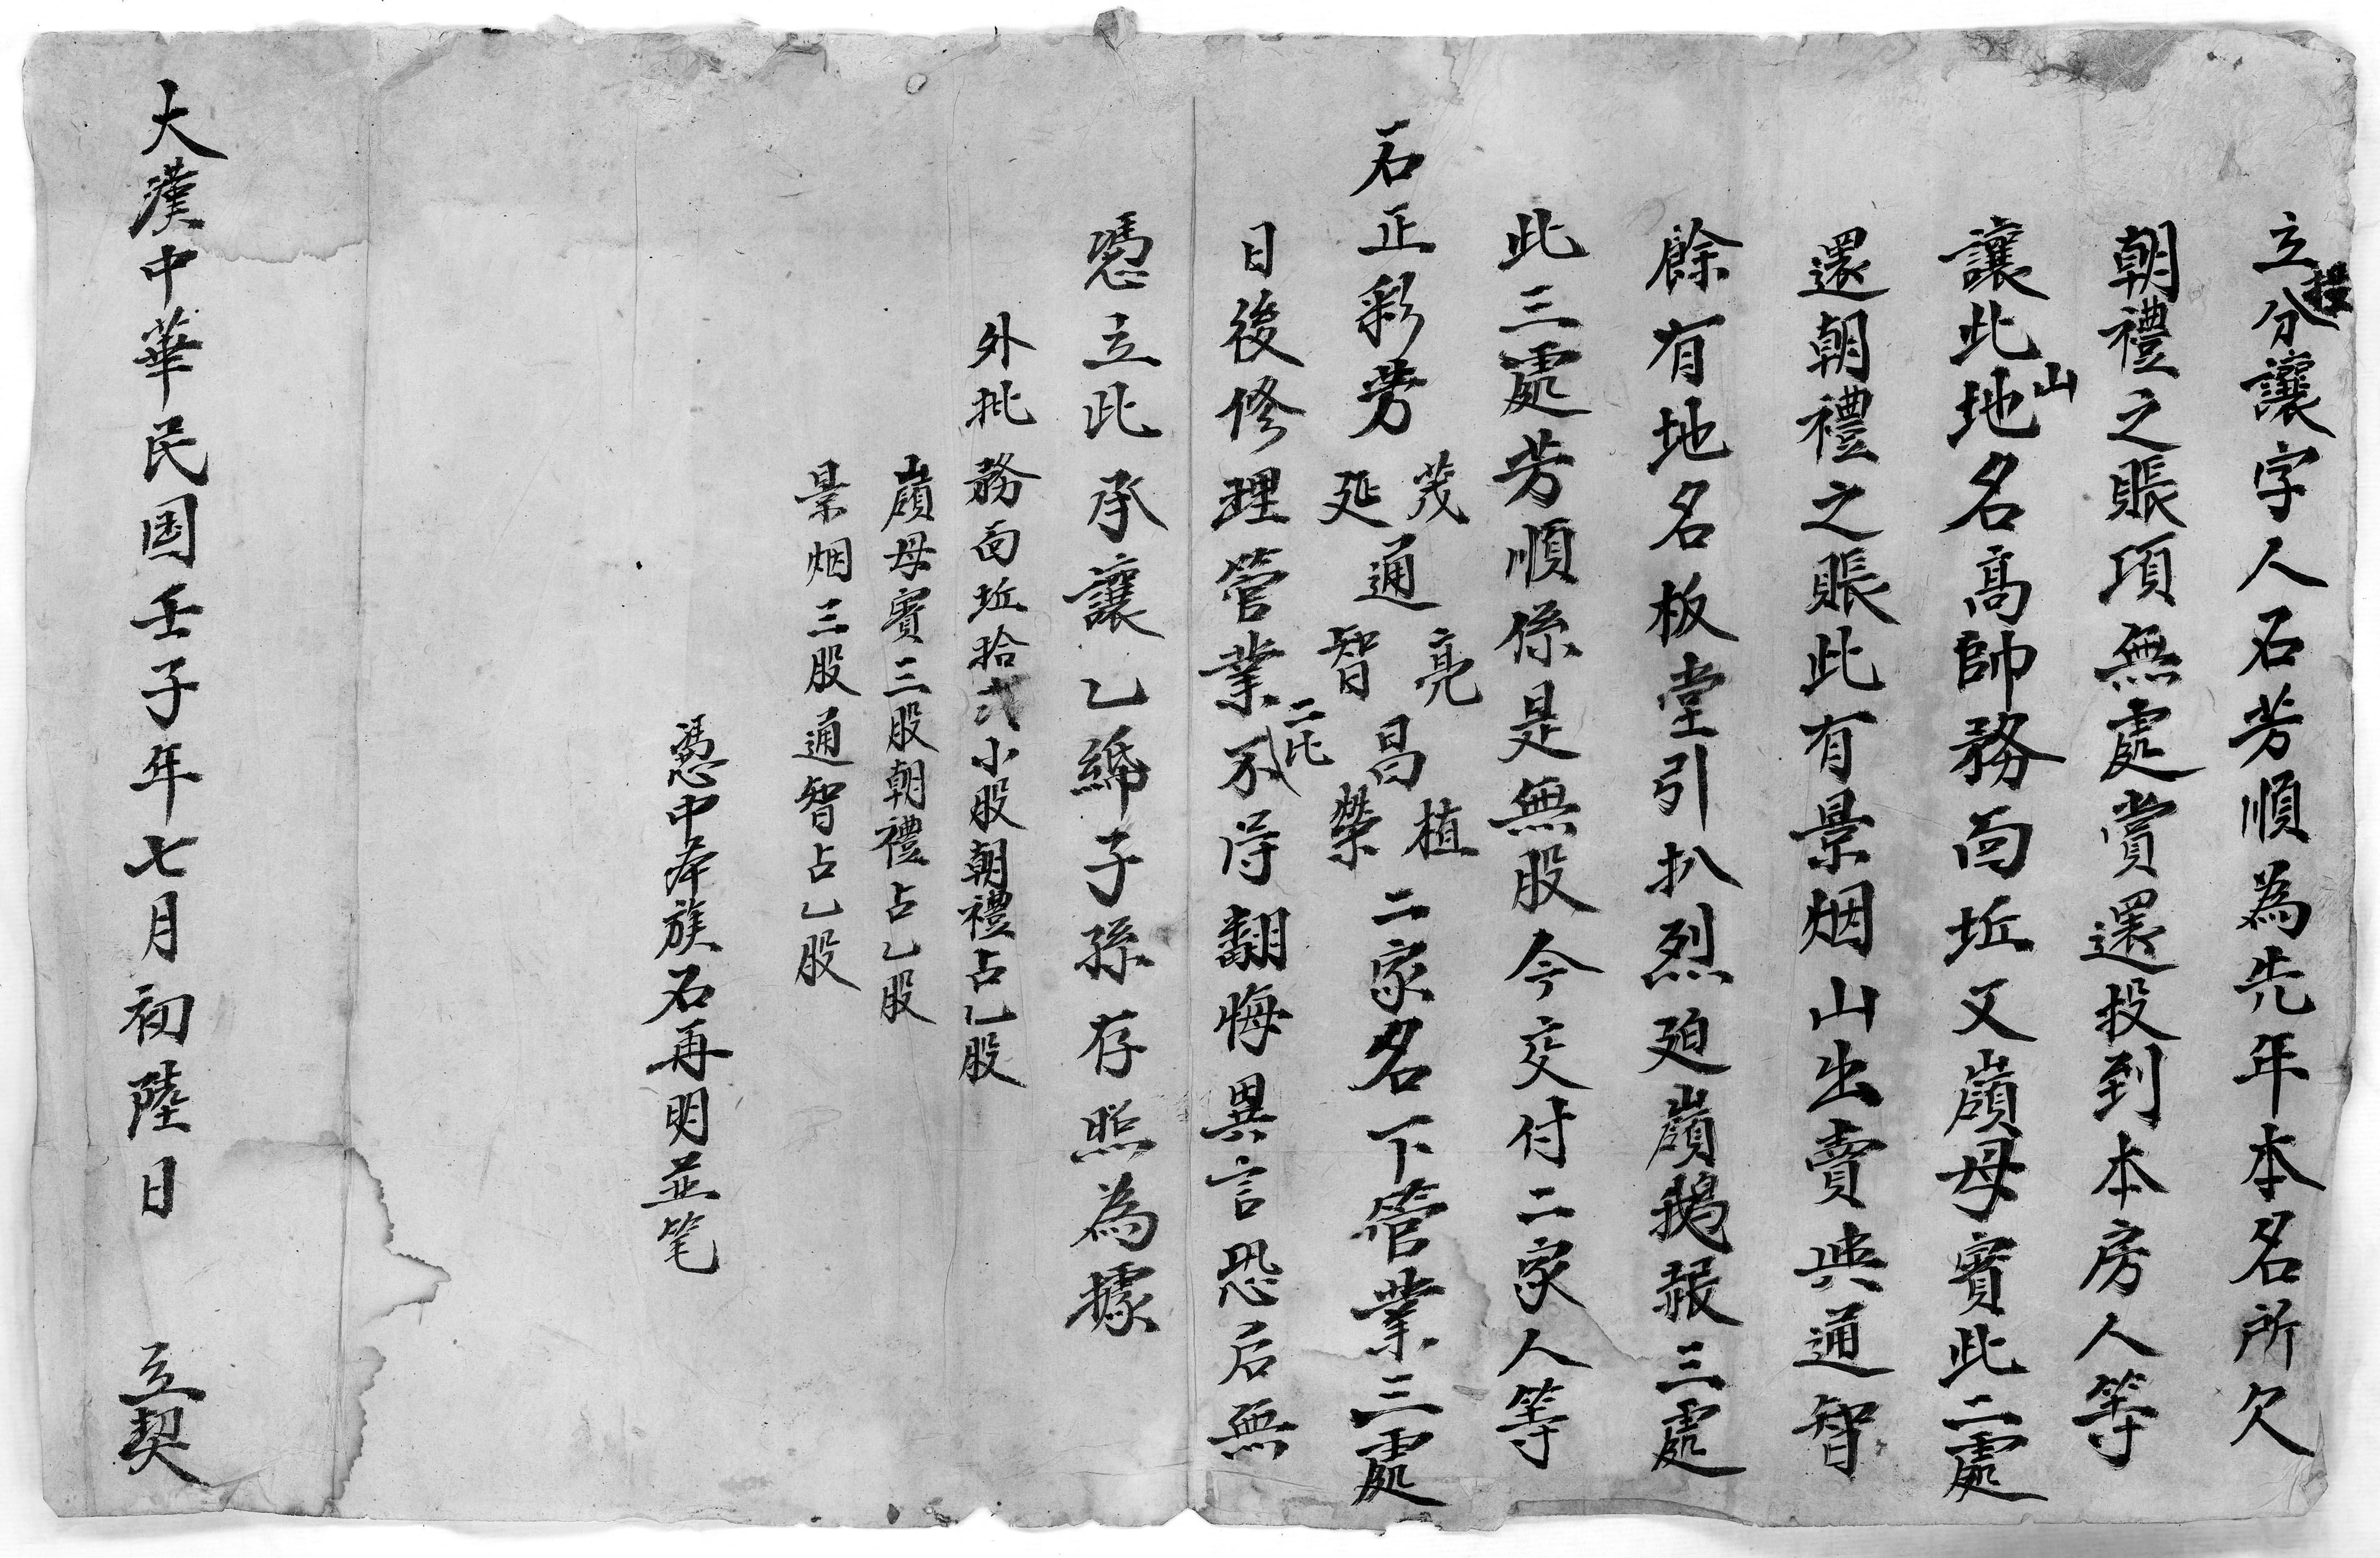 立分授讓字人石芳順為先年本名所欠
朝禮之賬項無處賞還投到本房人等
讓此山地名高帥務向坵又嶺母賓此二處
還朝禮之賬此有景烟山出賣與通智
餘有地名板堂引扒烈廹嶺鵝報三處
此三處芳順係是無股今交付二家人等
石正彩芳茂延通亮智昌植榮二家名下管業三處
日後修理管業二比不得翻悔異言恐后無
憑立此承讓乙締子孫存照為據
外批務向坵拾弍小股朝禮占乙股
嶺母賓三股朝禮占乙股
景烟三股通智占乙股
憑中房族石再明並笔
大漢中華民国壬子年七月初陸日 立契